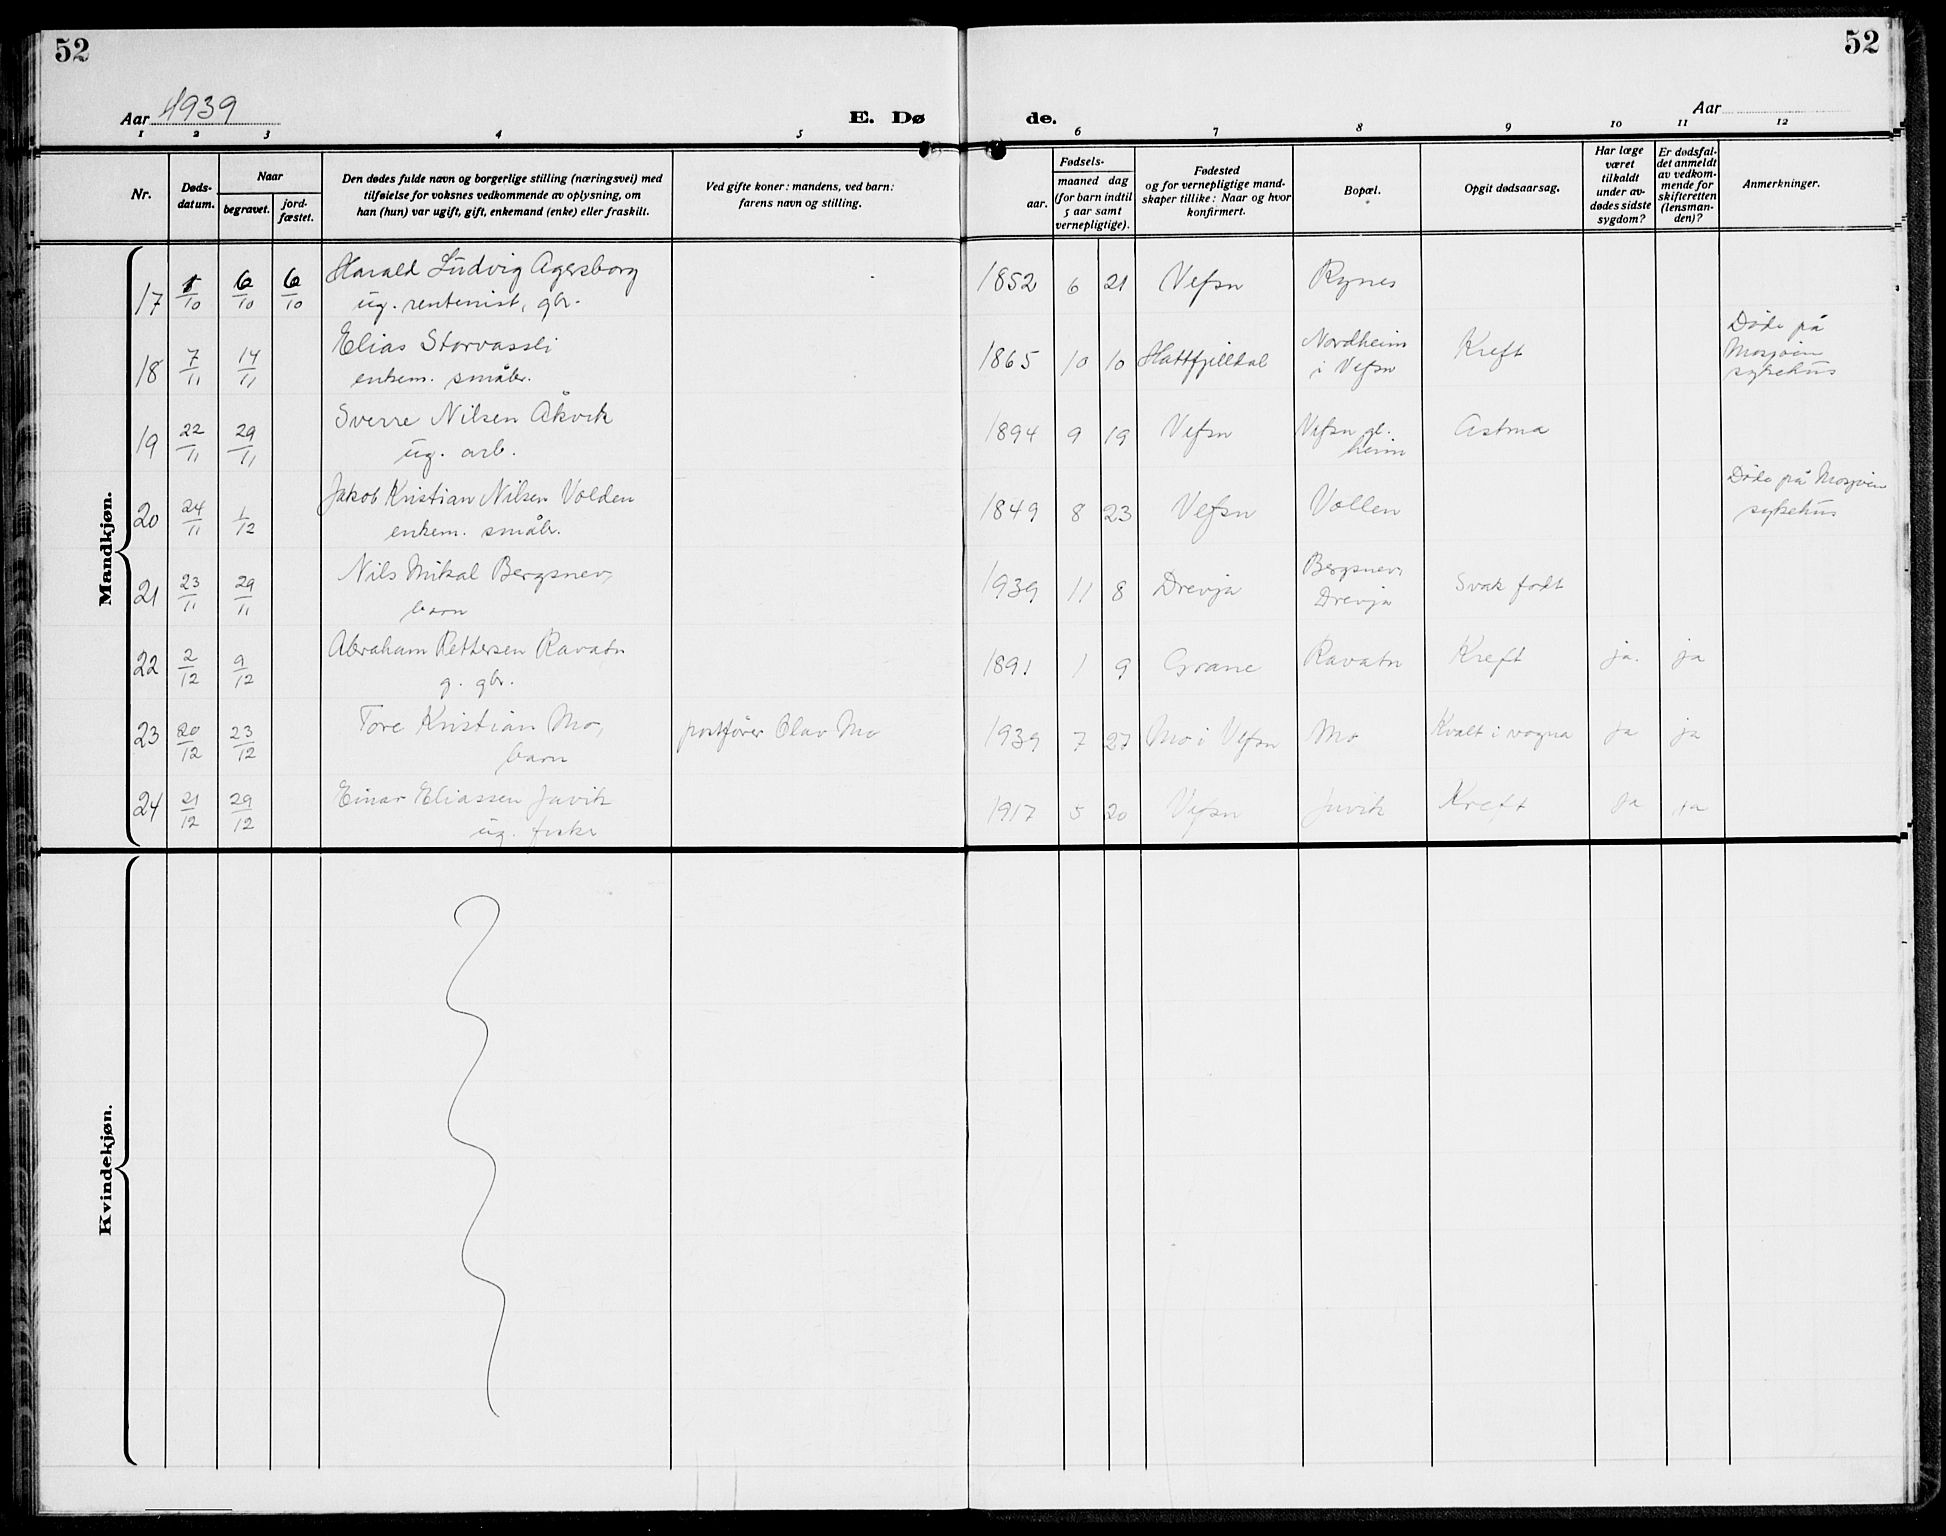 52
52
Aar 1939
E. Dø
de.
Aar
1 2 3 4 5 6 7 8 9 10 11 12
Nr.
Døds-
datum.
Naar
begravet.
jord-
fæstet.
Den dødes fulde navn og borgerlige stilling (næringsvei) med
tilføielse for voksnes vedkommende av oplysning, om
han (hun) var ugift, gift, enkemand (enke) eller fraskilt.
Ved gifte koner: mandens, ved barn:
farens navn og stilling.
Fødsels-
aar.
maaned dag
(for barn indtil
5 aar samt
vernepligtige).
Fødested
og for vernepligtige mand-
skaper tillike: Naar og hvor
konfirmert.
Bopæl.
Opgit dødsaarsag.
Har læge
været
tilkaldt
under av-
dødes sidste
sygdom?
Er dødsfal-
det anmeldt
av vedkom-
mende for
skifteretten
(lensman-
den)?
Anmerkninger.
Mandkjøn.
17 1/10 6/10 6/10 Harald Ludvig Agersborg 1852 6 21 Vefsn Rynes
ug. rentenist, gbr.
18 7/11 14/11 Elias Storvassli 1865 10 10 Hattfjelldal Nordheim Kreft Døde på
enkem. småbr. i Vefsn Mosjøen
sykehus
19 22/11 29/11 Sverre Nilsen Åkvik 1894 9 19 Vefsn Vefsn al. Astma
ug. arb. heim
20 24/11 1/12 Jakob Kristian Nilsen Volden 1849 8 23 Vefsn Vollen Døde på Mosjøen
enkem. småbr. sykehus
21 23/11 29/11 Nils Mikal Bergsnev, 1939 11 8 Drevja Bergsnev, Svak født
barn Drevja
22 2/12 9/12 Abraham Pettersen Ravatn 1891 1 9 Grane Ravatn Kreft ja. ja
g. gbr.
23 20/12 23/12 Tore Kristian Mo, postfører Olav Mo 1939 7 27 Mo i Vefsn Mo Kvalt i vogna ja ja
barn
24 21/12 29/12 Einar Eliassen Juvik 1917 5 20 Vefsn Juvik Kreft ja ja
ug. fisker
Kvindekjøn.